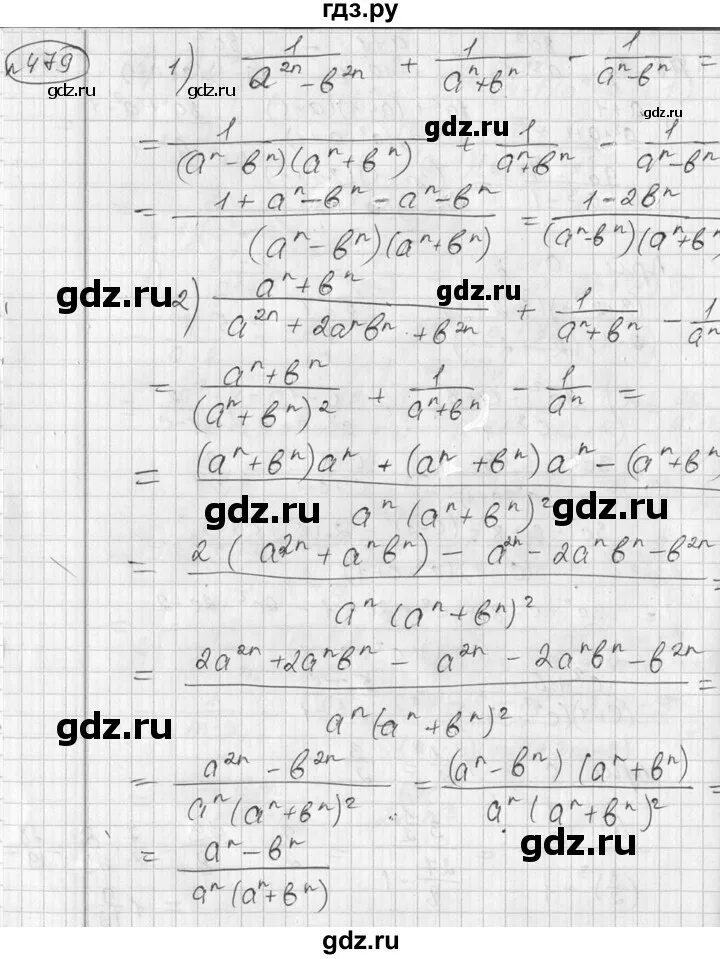 гдз.ру
n 479 1) 1/(a^2n - b^2n) + 1/(a^n + b^n) - 1/(a^n - b^n) =
gdz.ru gdz.ru gdz.ru
gdz.ru
= 1/((a^n - b^n)(a^n + b^n)) + 1/(a^n + b^n) - 1/(a^n - b^n)
= (1 + a^n - b^n - a^n - b^n)/((a^n - b^n)(a^n + b^n)) = (1 - 2b^n)/((a^n - b^n)(a^n + b^n)
gdz.ru gdz.ru
2) (a^n + b^n)/(a^2n + 2a^n b^n + b^2n) + 1/(a^n + b^n) - 1/a^n
= (a^n + b^n)/(a^n + b^n)^2 + 1/(a^n + b^n) - 1/a^n =
= ((a^n + b^n)a^n + (a^n + b^n)a^n - (a^n + b^n)/(a^n (a^n + b^n)^2)
gdz.ru gdz.ru
= (2(a^2n + a^n b^n) - a^2n - 2a^n b^n - b^2n)/(a^n (a^n + b^n)^2) =
= (2a^2n + 2a^n b^n - a^2n - 2a^n b^n - b^2n)/(a^n (a^n + b^n)^2) =
gdz.ru
= (a^2n - b^2n)/(a^n (a^n + b^n)^2) = ((a^n - b^n)(a^n + b^n))/(a^n (a^n + b^n)^2) =
gdz.ru
= (a^n - b^n)/(a^n (a^n + b^n))
gdz.ru